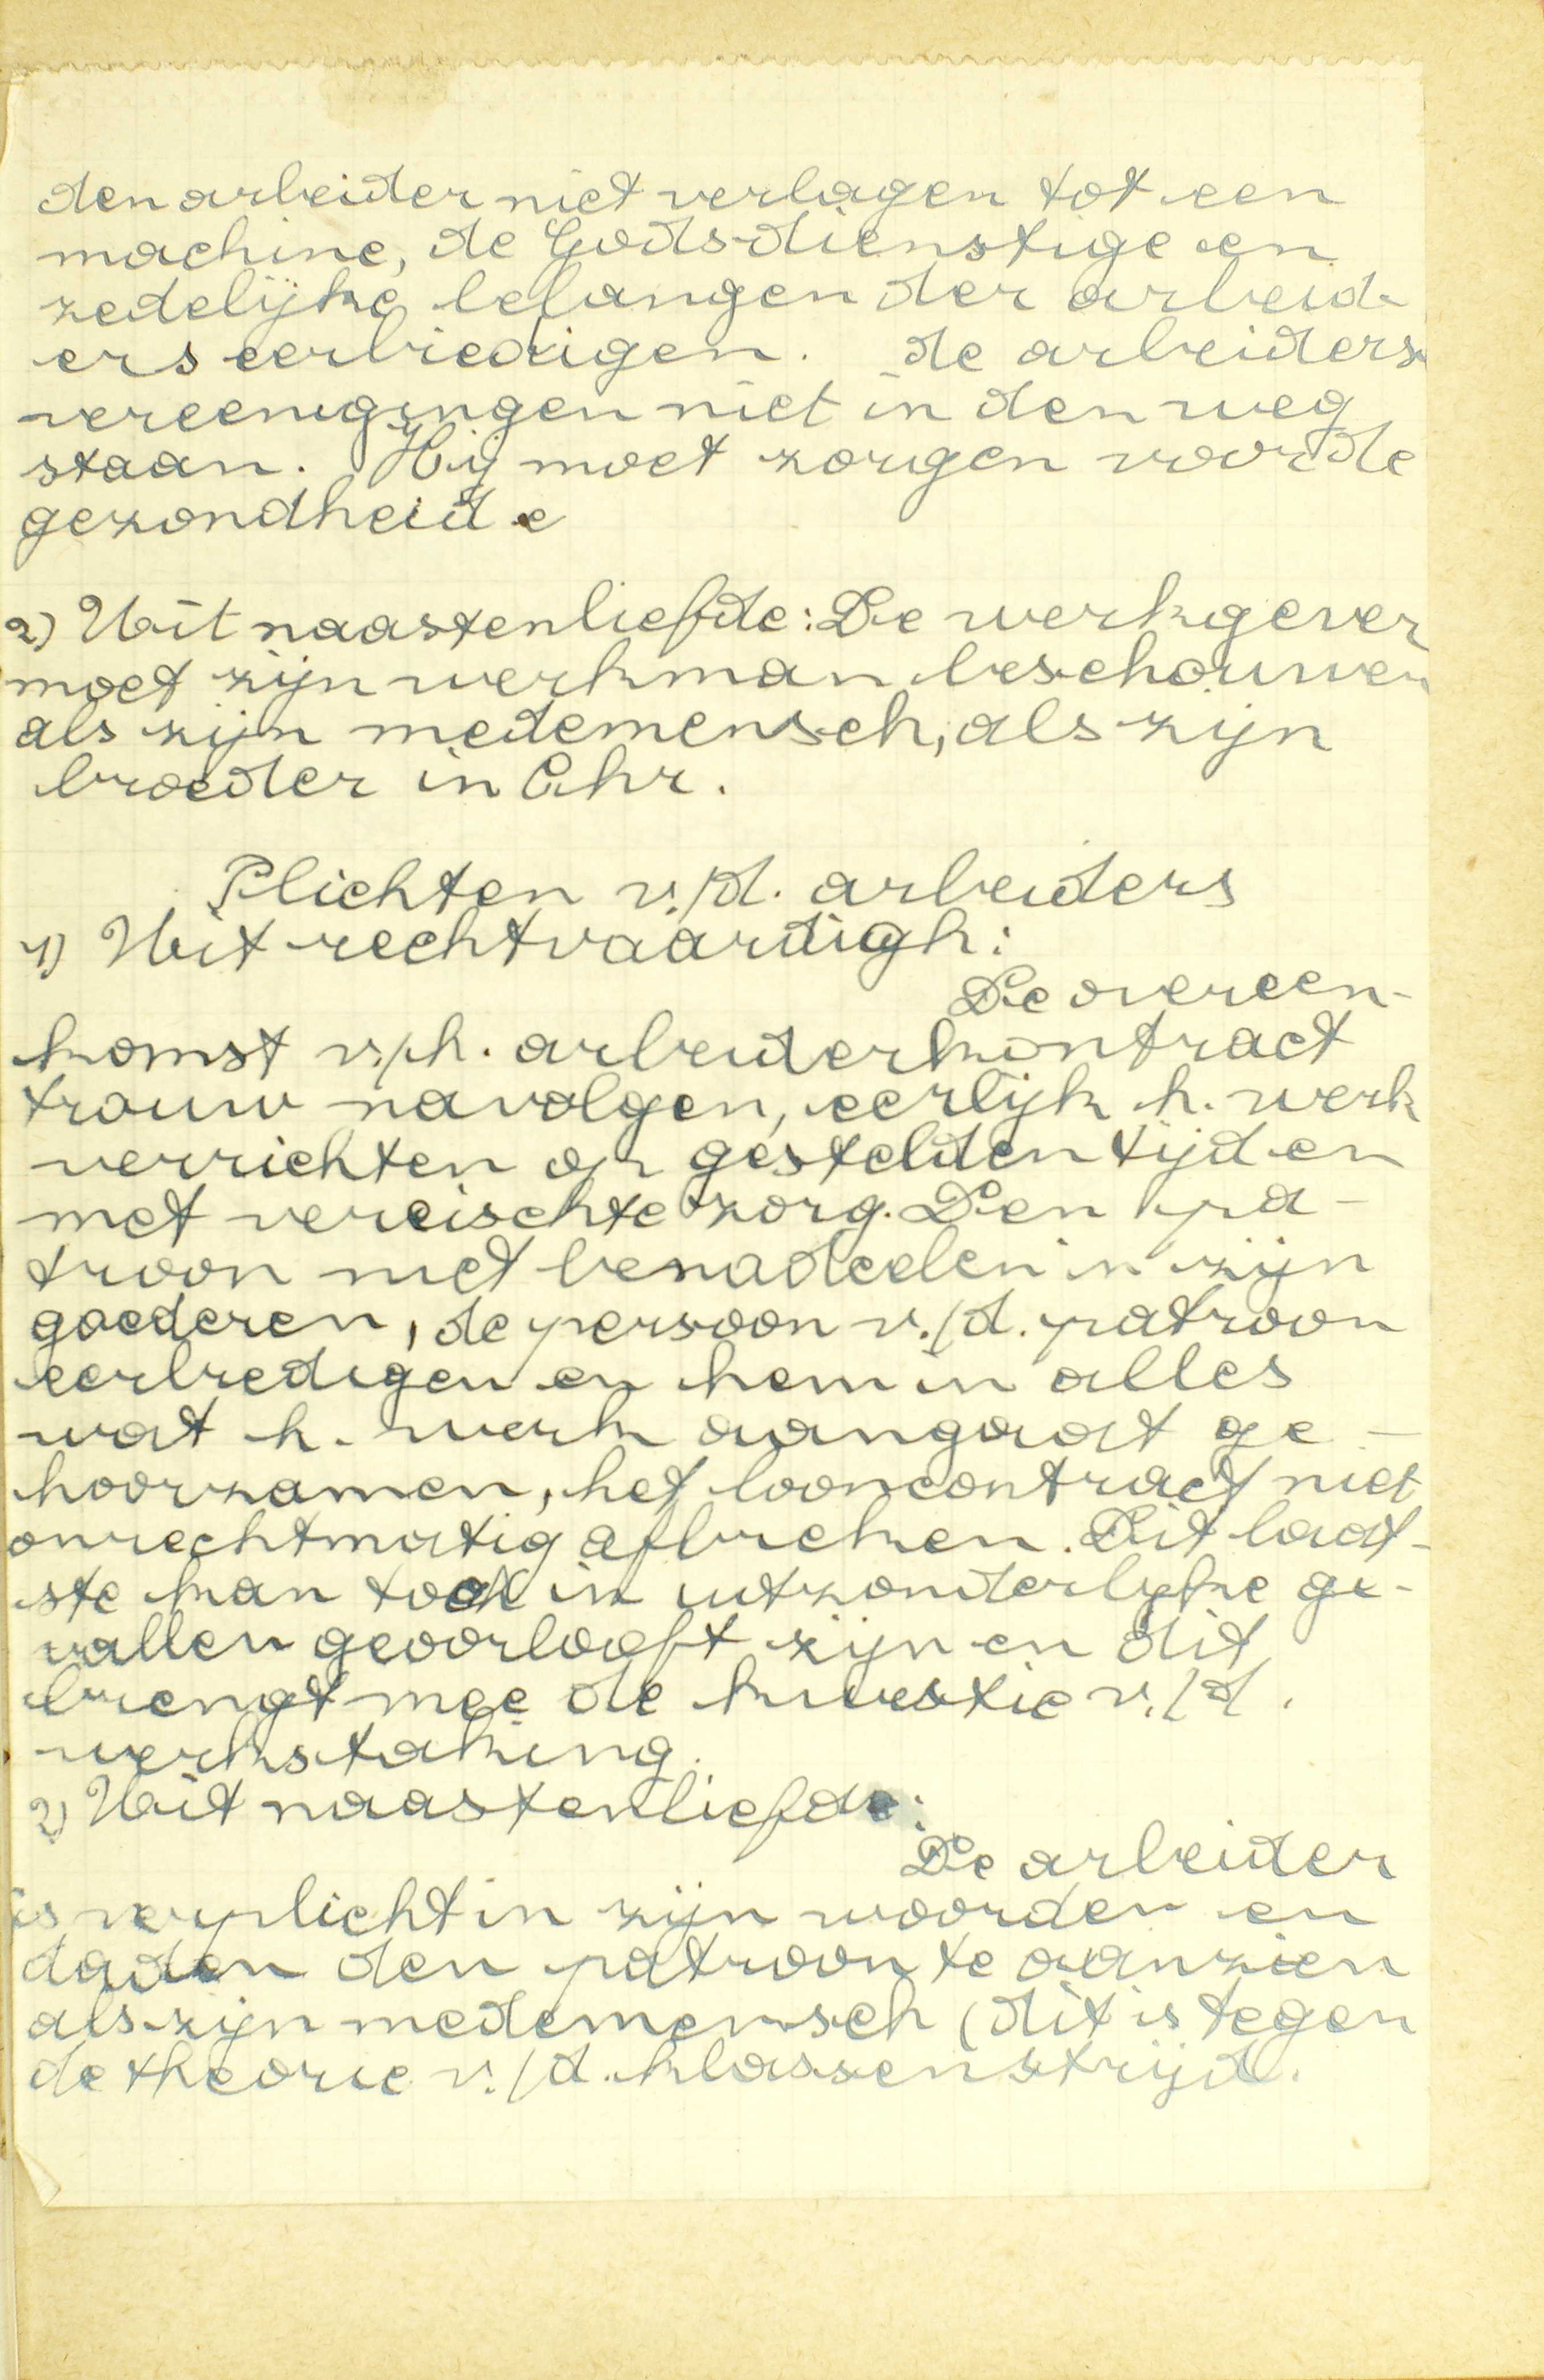 den arbeider niet verlagen tot een
machine, de Godsdienstige en
zedelijke belangen der arbeid-
ers eerbiedigen. de arbeiders
vereenigingen niet in den weg
staan. Hij moet zorgen voor de
gezondheid e
2) Uit naastenliefde: De werkgever
moet zijn werkman beschouwen
als zijn medemensch, als zijn
broeder in Chr.
Plichten v./d. arbeiders
1) Uit rechtvaardigh:
De overeen-
komst v./h. arbeiderkontract
trouw navolgen, eerlijk h. werk
verrichten op gestelden tijd en
met vereischte zorg. Den pa-
troon niet benadeelen in zijn
goederen, de persoon v./d. patroon
eerbiedigen en hem in alles
wat h. werk aangaat ge-
hoorzamen, het looncontract niet
onrechtmatig afbreken. Dit laat-
ste kan toch in uitzonderlijke ge-
vallen geoorlooft zijn en dit
brengt mee de kwestie v./d.
werkstaking.
2) Uit naastenliefde:
De arbeider
is verplicht in zijn woorden en
daden den patroon te aanzien
als zijn medemensch (dit is tegen
de theorie v./d. klassenstrijd.